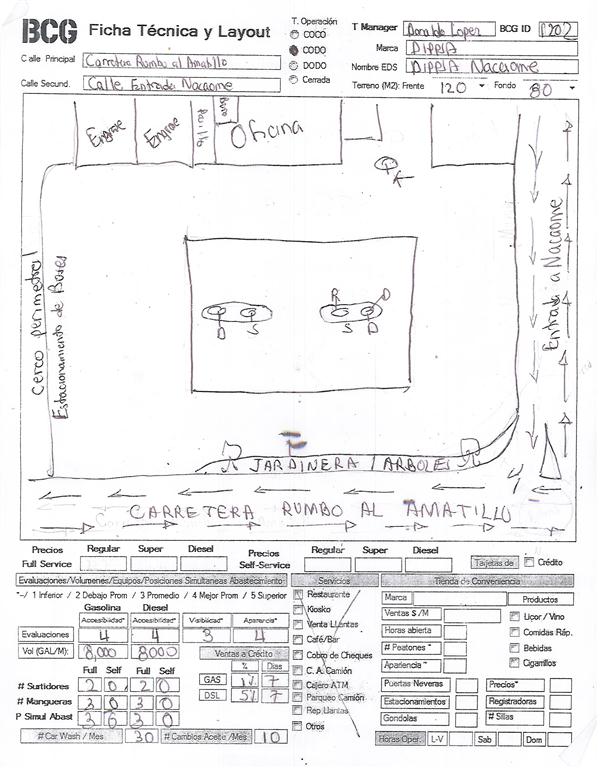 BCG Ficha Técnica y Layout
T. Operación
COCO
CODO
DODO
Cerrada
T Manager Donaldo Lopez BCG ID 1202
Marca DIPPSA
Nombre EDS DIPPSA Nacaome
Terreno (M2): Frente 120 Fondo 80
Calle Principal Carretera Rumbo al Amatillo
Calle Secund. Calle Entrada Nacaome
Engrase
Engrase
Oficina
Cerco perimetral
Estacionamiento de Buses
D S
R S D D
Entrada a Nacaome
JARDINERA / ARBOLES
CARRETERA RUMBO AL AMATILLO
Precios Full Service Regular Super Diesel
Precios Self-Service Regular Super Diesel
Tarjetas de Crédito
Evaluaciones/Volumenes/Equipos/Posiciones Simultaneas Abastecimiento
*-/ 1 Inferior / 2 Debajo Prom / 3 Promedio / 4 Mejor Prom / 5 Superior
Gasolina Diesel
Accesibilidad* Accesibilidad* Visibilidad* Apariencia*
Evaluaciones 4 4 3 4
Vol (GAL/M): 8,000 8000
Ventas a Crédito
% Dias
Full Self Full Self
GAS 7
DSL 5% 7
# Surtidores 2 0 2 0
# Mangueras 3 0 3 0
P Simul Abast 3 6 3 0
# Car Wash / Mes 30 # Cambios Aceite /Mes 10
Servicios
Restaurante
Kiosko
Venta Llantas
Café/Bar
Cobro de Cheques
C. A. Camión
Cajero ATM
Parqueo Camión
Rep Llantas
Otros
Tienda de Conveniencia
Marca
Productos
Ventas $ /M
Horas abierta
# Peatones *
Apariencia *
Liçor / Vino
Comidas Ráp.
Bebidas
Cigarrillos
Puertas Neveras Precios*
Estacionamientos Registradoras
Gondolas # Sillas
Horas Oper. L-V Sab Dom